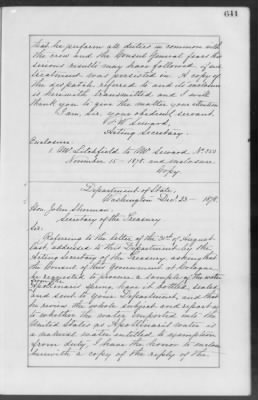 641
that he perform all duties in common with
the crew and the Consul General fears that
serious results may have followed if such
treatment was persisted in. A copy of
the despatch referred to and its enclosure
is herewith transmitted and I will
thank you to give the matter your attention
I am, Sir, your obedient servant.
F. W. Seward,
Acting Secretary.
Enclosure:
1. Mr. Litchfield to Mr. Seward. No.
November 15 - 1878. and enclosure.
Copy
Department of State,
Washington Dec. 23 - 1878.
Hon. John Sherman,
Secretary of the Treasury
Sir:
Referring to the letter of the 30th of August
last, addressed to this Department, by the
Acting Secretary of the Treasury, asking that
the Consul of this Government at Cologne
be requested to procure a sample of the water
Apollinaris spring, have it bottled, sealed
and sent to your Department, and that
he review the whole subject and report as
to whether the water imported into the
United States as Apollinaris water is
a natural water entitled to exemption
from duty, I have the honor to enclose
herewith a copy of the reply of the